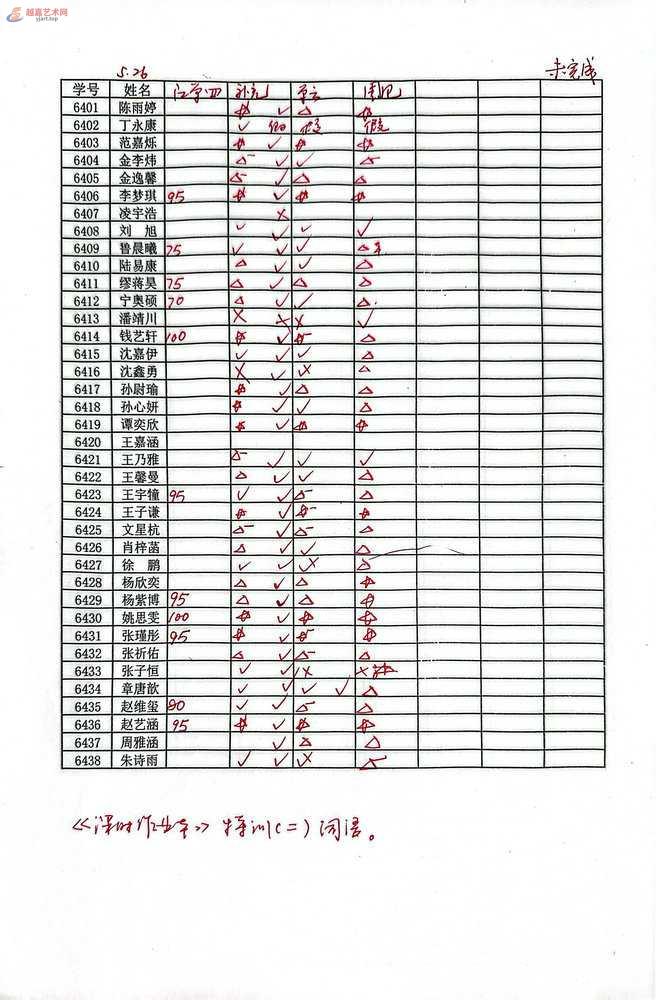 越嘉艺术网
yjart.top
5.26 未完成
学号 姓名 补充 周记
6401 陈雨婷 ☆ ✓ △ ☆
6402 丁永康 ✓ 假 假
6403 范嘉烁 ☆ ✓ ☆ ☆
6404 金李炜 △- ✓ ✓ △-
6405 金逸馨 △- ✓ △ △
6406 李梦琪 95 ☆ ✓ ☆ ☆
6407 凌宇浩 ×
6408 刘旭 ✓ ✓ ✓ ✓
6409 鲁晨曦 75 ✓ ✓ ✓ △
6410 陆易康 △ ✓ ✓ △
6411 缪蒋昊 75 △ ✓ △ △
6412 宁奥硕 70 △ ✓ ✓ △
6413 潘靖川 × × × ✓
6414 钱艺轩 100 ☆ ✓ ☆- △
6415 沈嘉伊 ✓ ✓ ✓ △
6416 沈鑫勇 × ✓ × △
6417 孙尉瑜 ☆ ✓ △ △
6418 孙心妍 ☆ ✓ ✓ △
6419 谭奕欣 ☆ ✓ ☆ ☆
6420 王嘉涵
6421 王乃雅 △- ✓ ✓ ✓
6422 王馨曼 △ ✓ ✓ △
6423 王宇犝 95 ✓ ✓ △- △
6424 王子谦 ☆ ✓ ☆- ☆
6425 文星杭 △- ✓ △- △
6426 肖梓菡 △ ✓ ✓ △
6427 徐鹏 ✓ ✓ × △
6428 杨欣奕 △ ✓ △ ☆
6429 杨紫博 95 △ ✓ △ ☆
6430 姚思雯 100 ☆ ✓ ☆ ☆
6431 张瑾彤 95 ☆ ✓ ☆- ☆
6432 张祈佑 △ ✓ △- △
6433 张子恒 ✓ ✓ × ×
6434 章唐歆 ✓ ✓ ✓ ✓ △
6435 赵维玺 80 ✓ ✓ △- △
6436 赵艺涵 95 ☆ ✓ ☆ ☆
6437 周雅涵 ✓ △ △
6438 朱诗雨 ✓ ✓ × △-
《课时作业本》特训(二)词语。